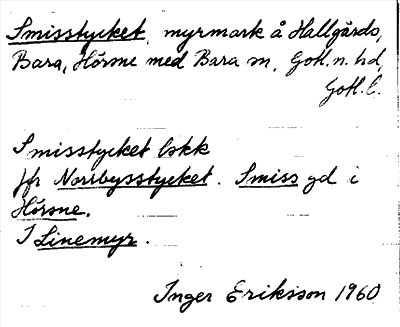 Smisstycket, myrmark å Hallgårds,
Bara, Hörsne med Bara sn, Gotl. n. hd,
Gotl. l.
Smisstycket lskk
Jfr Norrbysstycket. Smiss gd i
Hörsne.
I Linemyr.
Inger Eriksson 1960